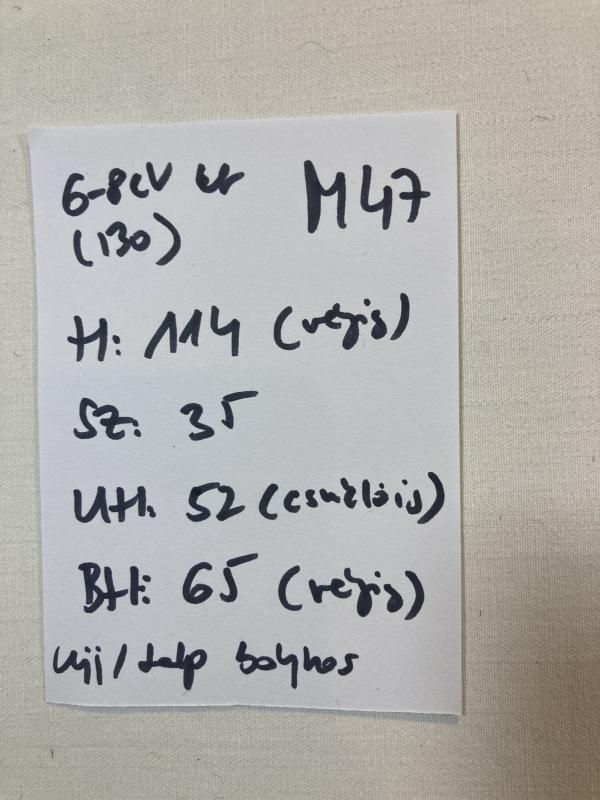 6-8 év kr M47
(130)
H: 114 (végig)
SZ: 35
UH: 52 (csuklóig)
BH: 65 (végig)
ujj/talp bolyhos